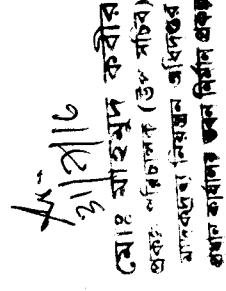 ৩১/১/১৮
মোঃ মাহমুদ কবীর
প্রকল্প পরিচালক (উপ সচিব)
মাদকদ্রব্য নিয়ন্ত্রন অধিদপ্তর
প্রধান কার্যালয় ভবন নির্মান প্রকল্প